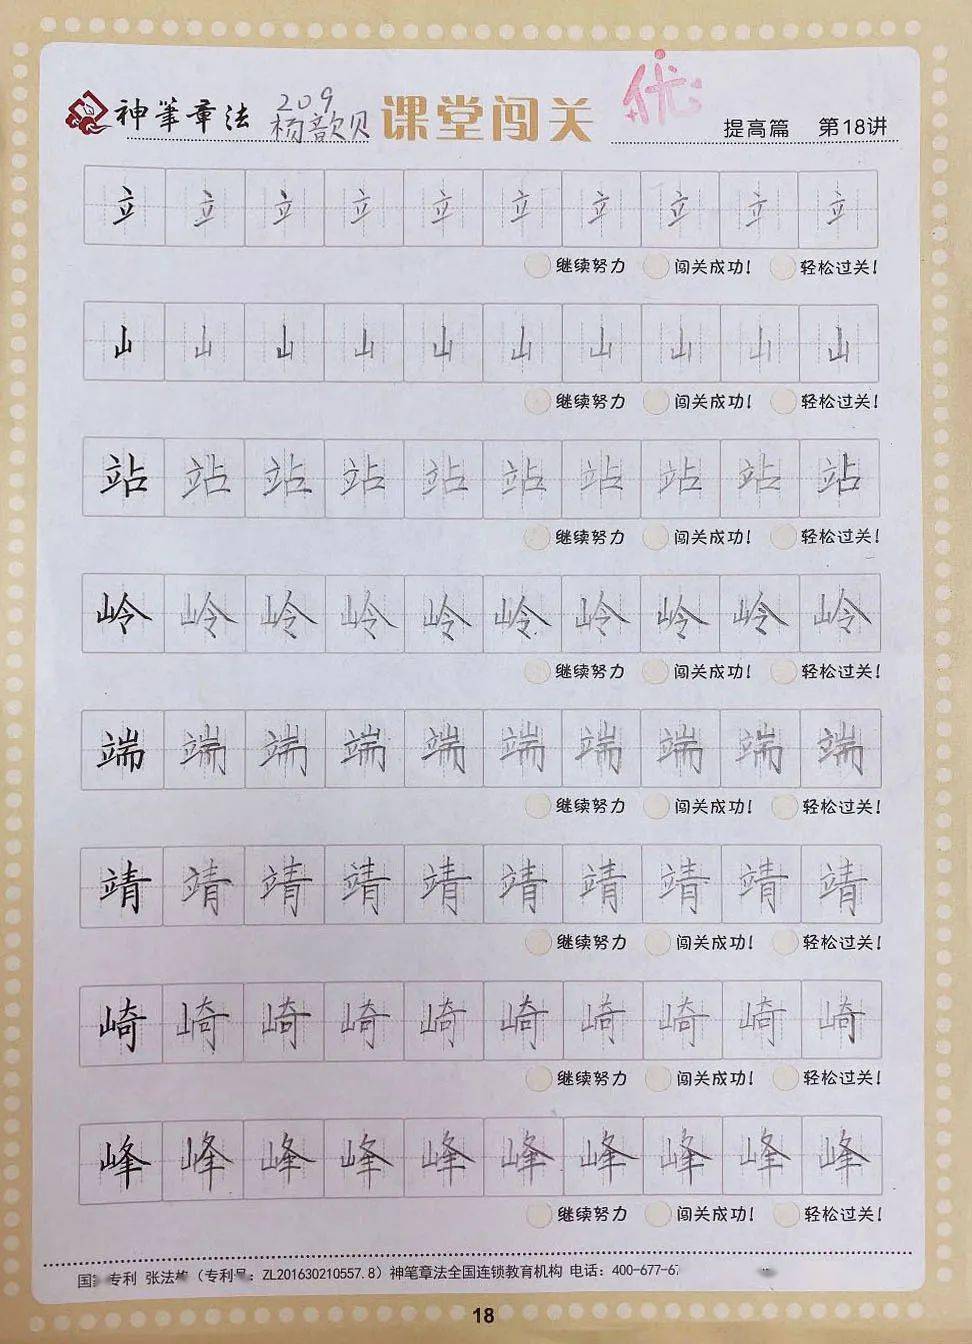 神筆章法 209 杨歆贝 课堂闯关 优 提高篇 第18讲
立 立 立 立 立 立 立 立 立 立
继续努力 闯关成功! 轻松过关!
山 山 山 山 山 山 山 山 山 山
继续努力 闯关成功! 轻松过关!
站 站 站 站 站 站 站 站 站 站
继续努力 闯关成功! 轻松过关!
岭 岭 岭 岭 岭 岭 岭 岭 岭 岭
继续努力 闯关成功! 轻松过关!
端 端 端 端 端 端 端 端 端 端
继续努力 闯关成功! 轻松过关!
靖 靖 靖 靖 靖 靖 靖 靖 靖 靖
继续努力 闯关成功! 轻松过关!
崎 崎 崎 崎 崎 崎 崎 崎 崎 崎
继续努力 闯关成功! 轻松过关!
峰 峰 峰 峰 峰 峰 峰 峰 峰 峰
继续努力 闯关成功! 轻松过关!
专利 张法 (专利号: ZL201630210557.8) 神笔章法全国连锁教育机构 电话: 400-677-6
18